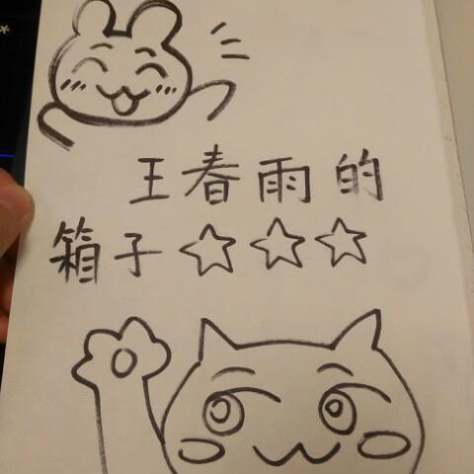 王春雨的
箱子☆☆☆